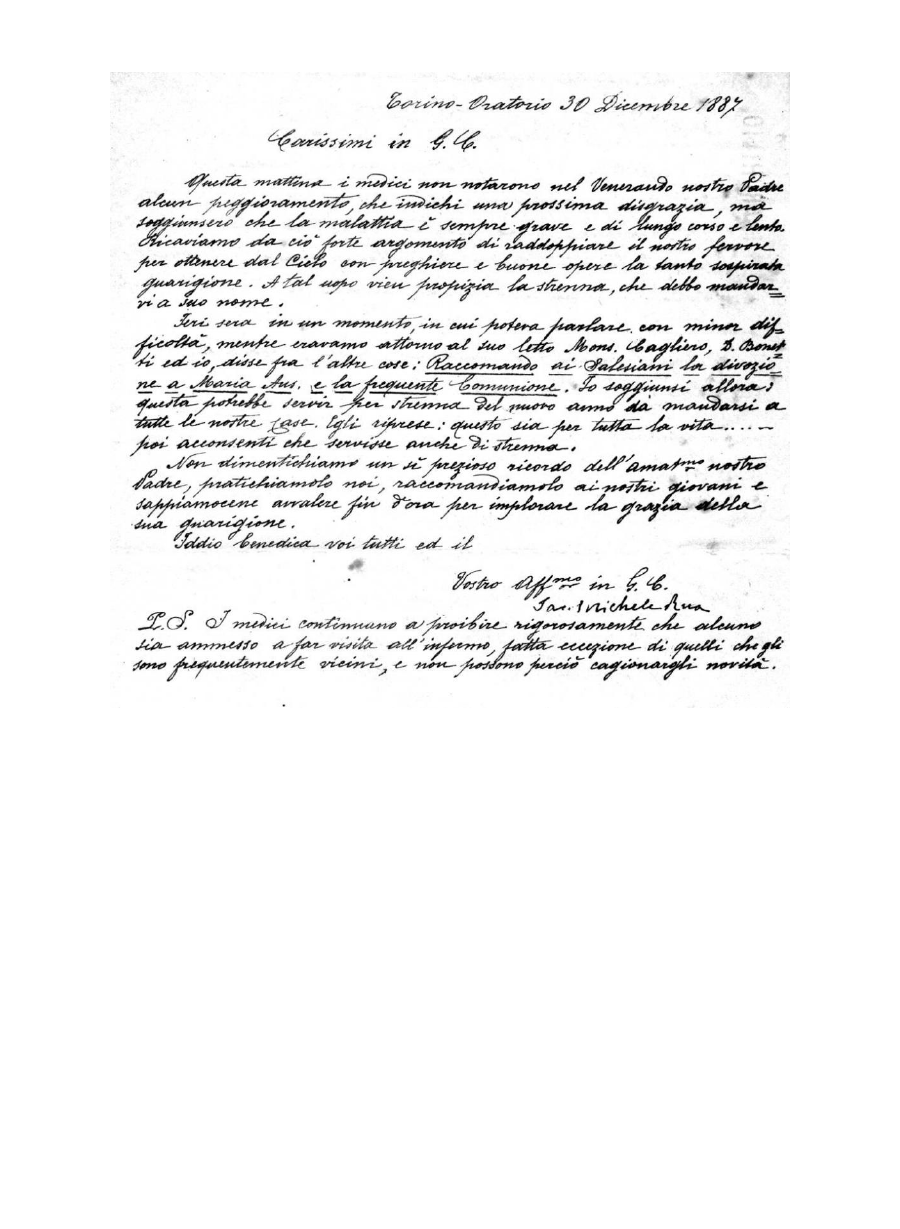 Torino-Oratorio 30 Dicembre 1887
Carissimi in G. C.
Questa mattina i medici non notarono nel Venerando nostro Padre
alcun peggioramento, che indichi una prossima disgrazia, ma
soggiunsero che la malattia è sempre grave e di lungo corso e lento.
Ricaviamo da ciò forte argomento di raddoppiare il nostro fervore
per ottenere dal Cielo con preghiere e buone opere la tanto sospirata
guarigione. A tal uopo vien propizia la strenna, che debbo mandar=
vi a suo nome.
Ieri sera in un momento, in cui poteva parlare con minor dif=
ficoltà, mentre eravamo attorno al suo letto Mons. Cagliero, D. Bonet=
ti ed io, disse fra l'altre cose: Raccomando ai Salesiani la divozio=
ne a Maria Aus. e la frequente Comunione. Io soggiunsi allora:
questa potrebbe servir per strenna del nuovo anno da mandarsi a
tutte le nostre Case. Egli riprese: questo sia per tutta la vita.....-
poi acconsentì che servisse anche di strenna.
Non dimentichiamo un sì prezioso ricordo dell'amatmo nostro
Padre, pratichiamolo noi, raccomandiamolo ai nostri giovani e
sappiamocene avvalere fin d'ora per implorare la grazia della
sua guarigione.
Iddio benedica voi tutti ed il
Vostro Affmo in G. C.
Sac. Michele Rua
P.S. I medici continuano a proibire rigorosamente che alcuno
sia ammesso a far visita all'infermo, fatta eccezione di quelli che gli
sono frequentemente vicini, e non possono perciò cagionargli novità.